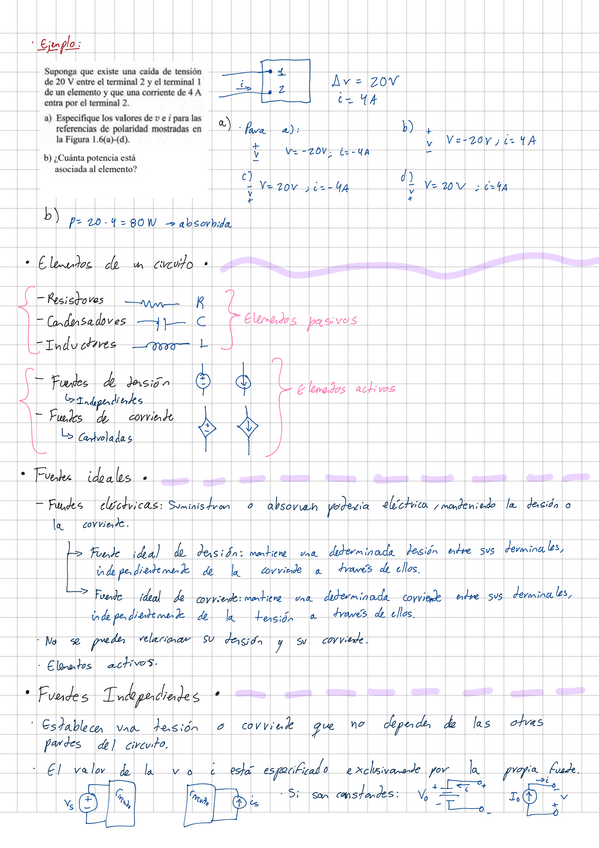 · Ejemplo:
Suponga que existe una caída de tensión
de 20 V entre el terminal 2 y el terminal 1
de un elemento y que una corriente de 4 A
entra por el terminal 2.
a) Especifique los valores de v e i para las
referencias de polaridad mostradas en
la Figura 1.6(a)-(d).
b) ¿Cuánta potencia está
asociada al elemento?
i 1 2
Δv = 20V
i = 4A
a) · Para a):
+ v - V = -20V; i = -4A
b) + v - V = -20V; i = 4A
c) - v + V = 20V; i = -4A
d) - v + V = 20V; i = 4A
b) p = 20 · 4 = 80 W → absorbida
• Elementos de un circuito •
- Resistores R
- Condensadores C
- Inductores L
Elementos pasivos
- Fuentes de tensión
↳ Independientes
- Fuentes de corriente
↳ Controladas
Elementos activos
• Fuentes ideales •
- Fuentes eléctricas: Suministran o absorven potencia eléctrica, manteniendo la tensión o
la corriente.
→ Fuente ideal de tensión: mantiene una determinada tesión entre sus terminales,
independientemente de la corriente a través de ellos.
→ Fuente ideal de corriente: mantiene una determinada corriente entre sus terminales,
independientemente de la tensión a través de ellos.
· No se pueden relacionar su tensión y su corriente.
· Elementos activos.
• Fuentes Independientes •
· Establecen una tensión o corriente que no dependen de las otras
partes del circuito.
· El valor de la v o i está especificado exclusivamente por la propia fuente.
Vs + - Circuito
Circuito is
· Si son constantes: V₀ + - i + -
I₀ i - v +